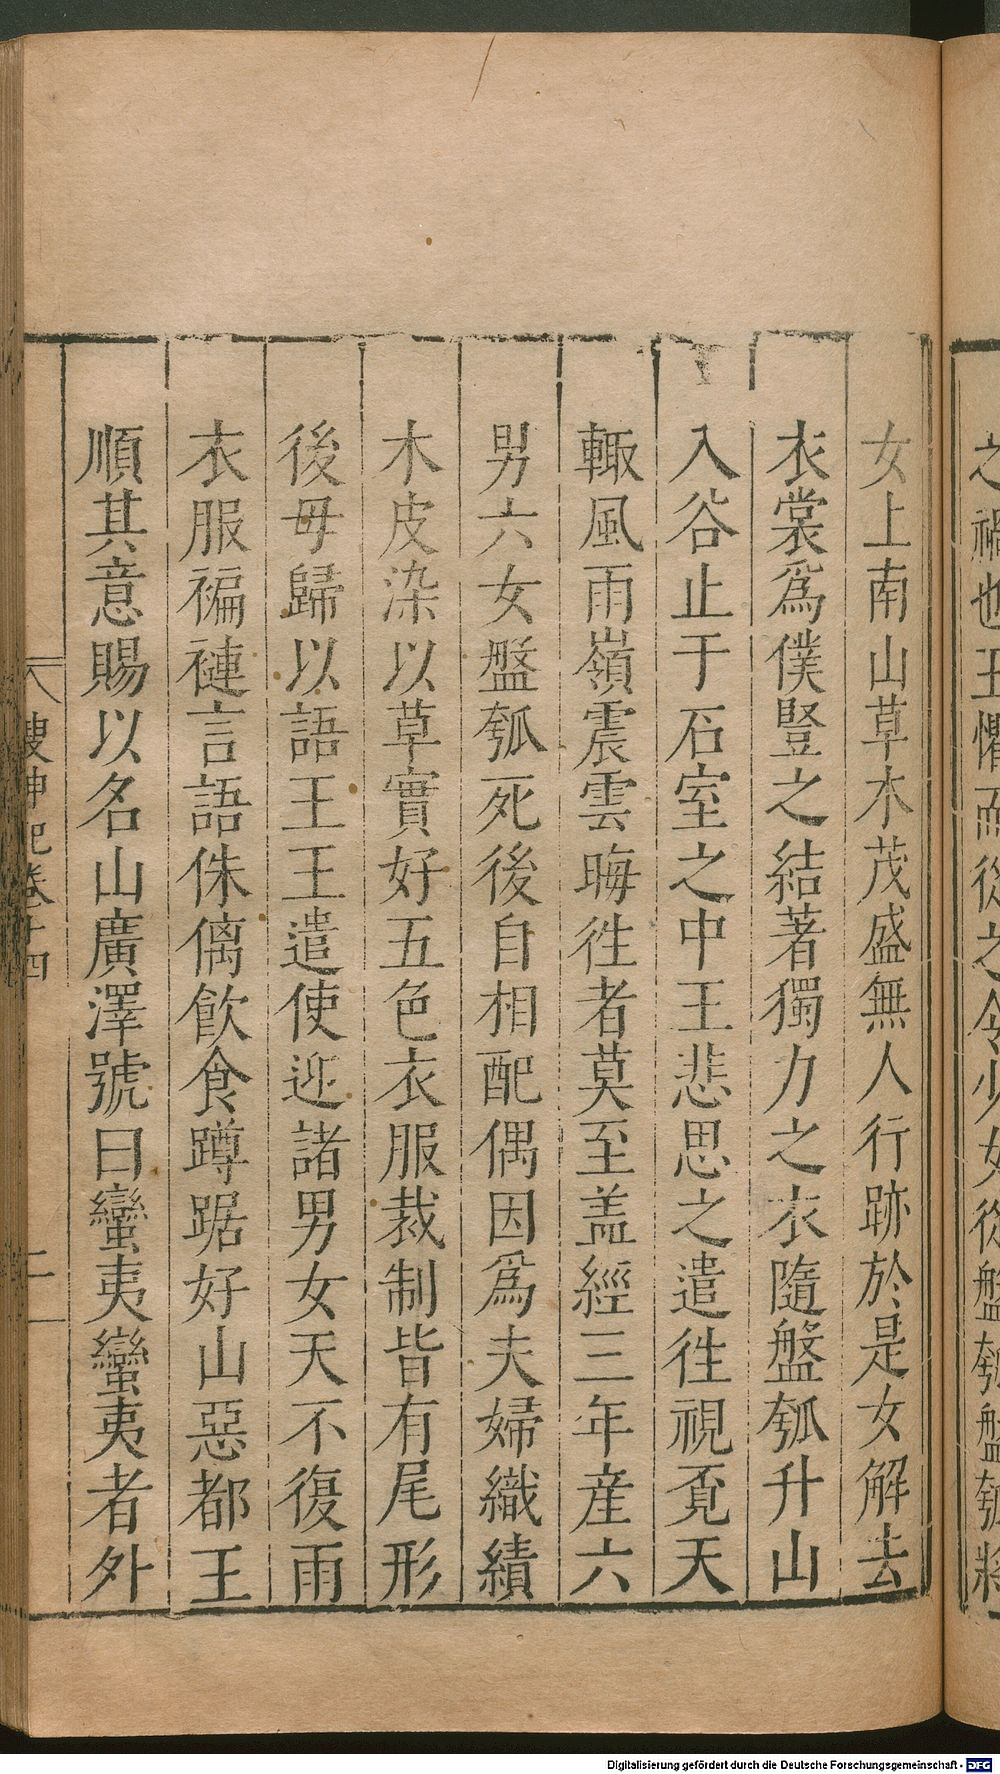 之禍也王懼而從之令少女從盤瓠盤瓠將
女上南山草木茂盛無人行跡於是女解去
衣裳為僕豎之結著獨力之衣隨盤瓠升山
入谷止于石室之中王悲思之遣徃視覔天
輙風雨嶺震雲晦徃者莫至盖經三年産六
男六女盤瓠死後自相配偶因為夫婦織績
木皮染以草實好五色衣服裁制皆有尾形
後母歸以語王王遣使迎諸男女天不復雨
衣服褊褳言語侏㒧飲食蹲踞好山惡都王
順其意賜以名山廣澤號曰蠻夷蠻夷者外
搜神記卷十四
二
Digitalisierung gefördert durch die Deutsche Forschungsgemeinschaft - DFG